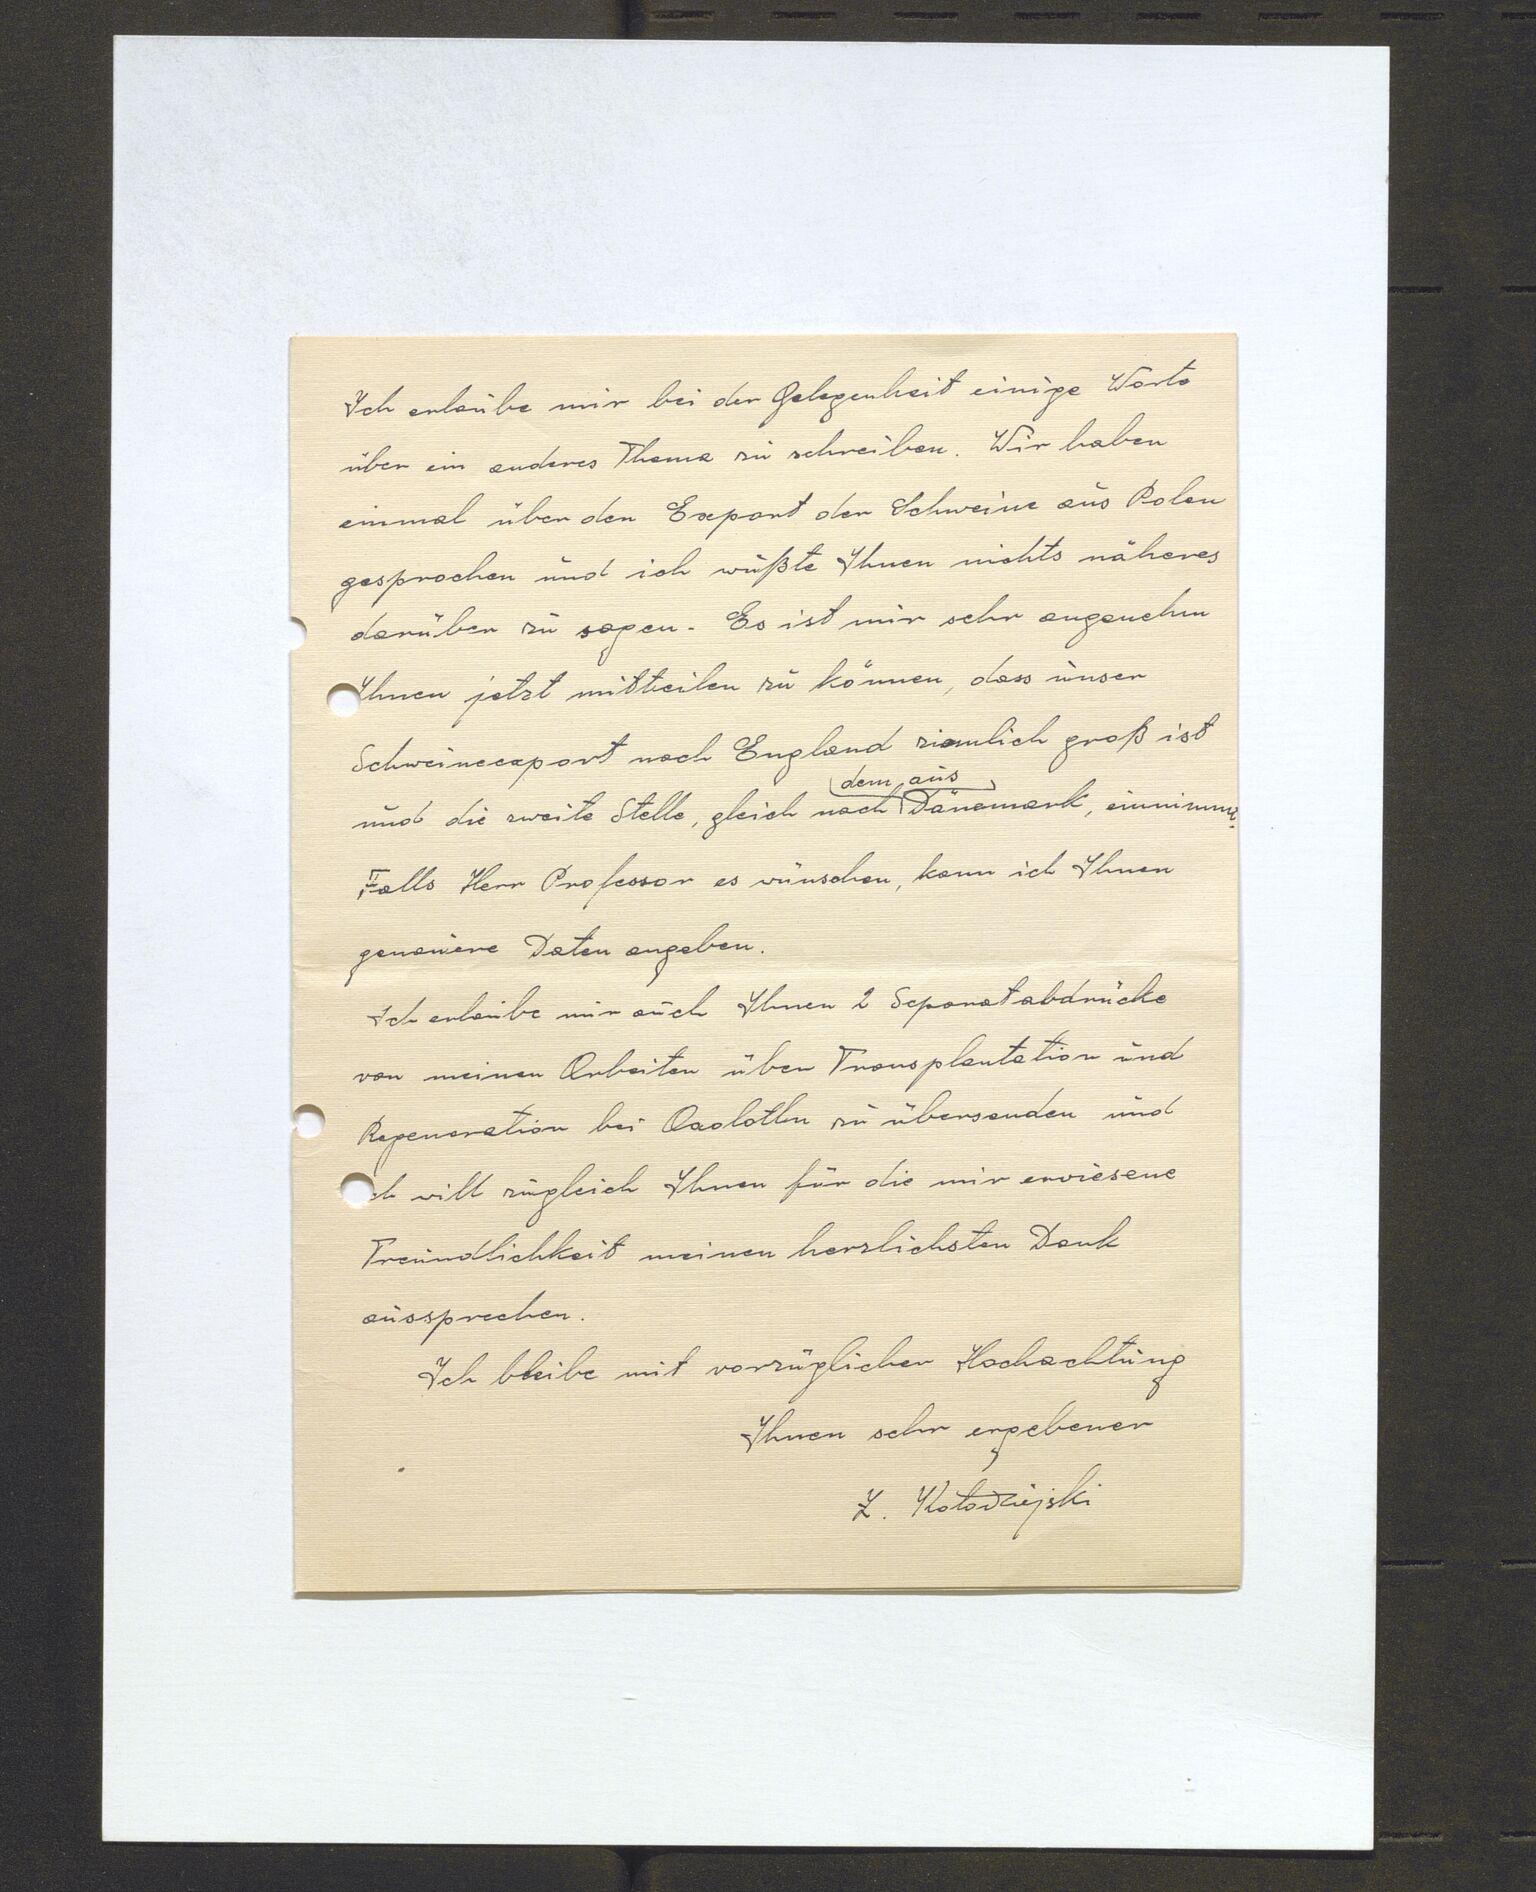 Ich erlaube mir bei der Gelegenheit einige Worte
über ein anderes Thema zu schreiben. Wir haben
einmal über den Export der Schweine aus Polen
gesprochen und ich wußte Ihnen nichts näheres
darüber zu sagen. Es ist mir sehr angenehm
Ihnen jetzt mitteilen zu können, dass unser
Schweineexport nach England ziemlich groß ist
dem aus
und die zweite Stelle, gleich nach Dänemark, einnimmt.
Falls Herr Professor es wünschen, kann ich Ihnen
genauere Daten angeben.
Ich erlaube mir auch Ihnen 2 Separatabdrücke
von meinen Arbeiten über Transplantation und
Regeneration bei Axolotln zu übersenden und
ich will zugleich Ihnen für die mir erwiesene
Freundlichkeit meinen herzlichsten Dank
aussprechen.
Ich bleibe mit vorzüglicher Hochachtung
Ihnen sehr ergebener
Z. Kołodziejski